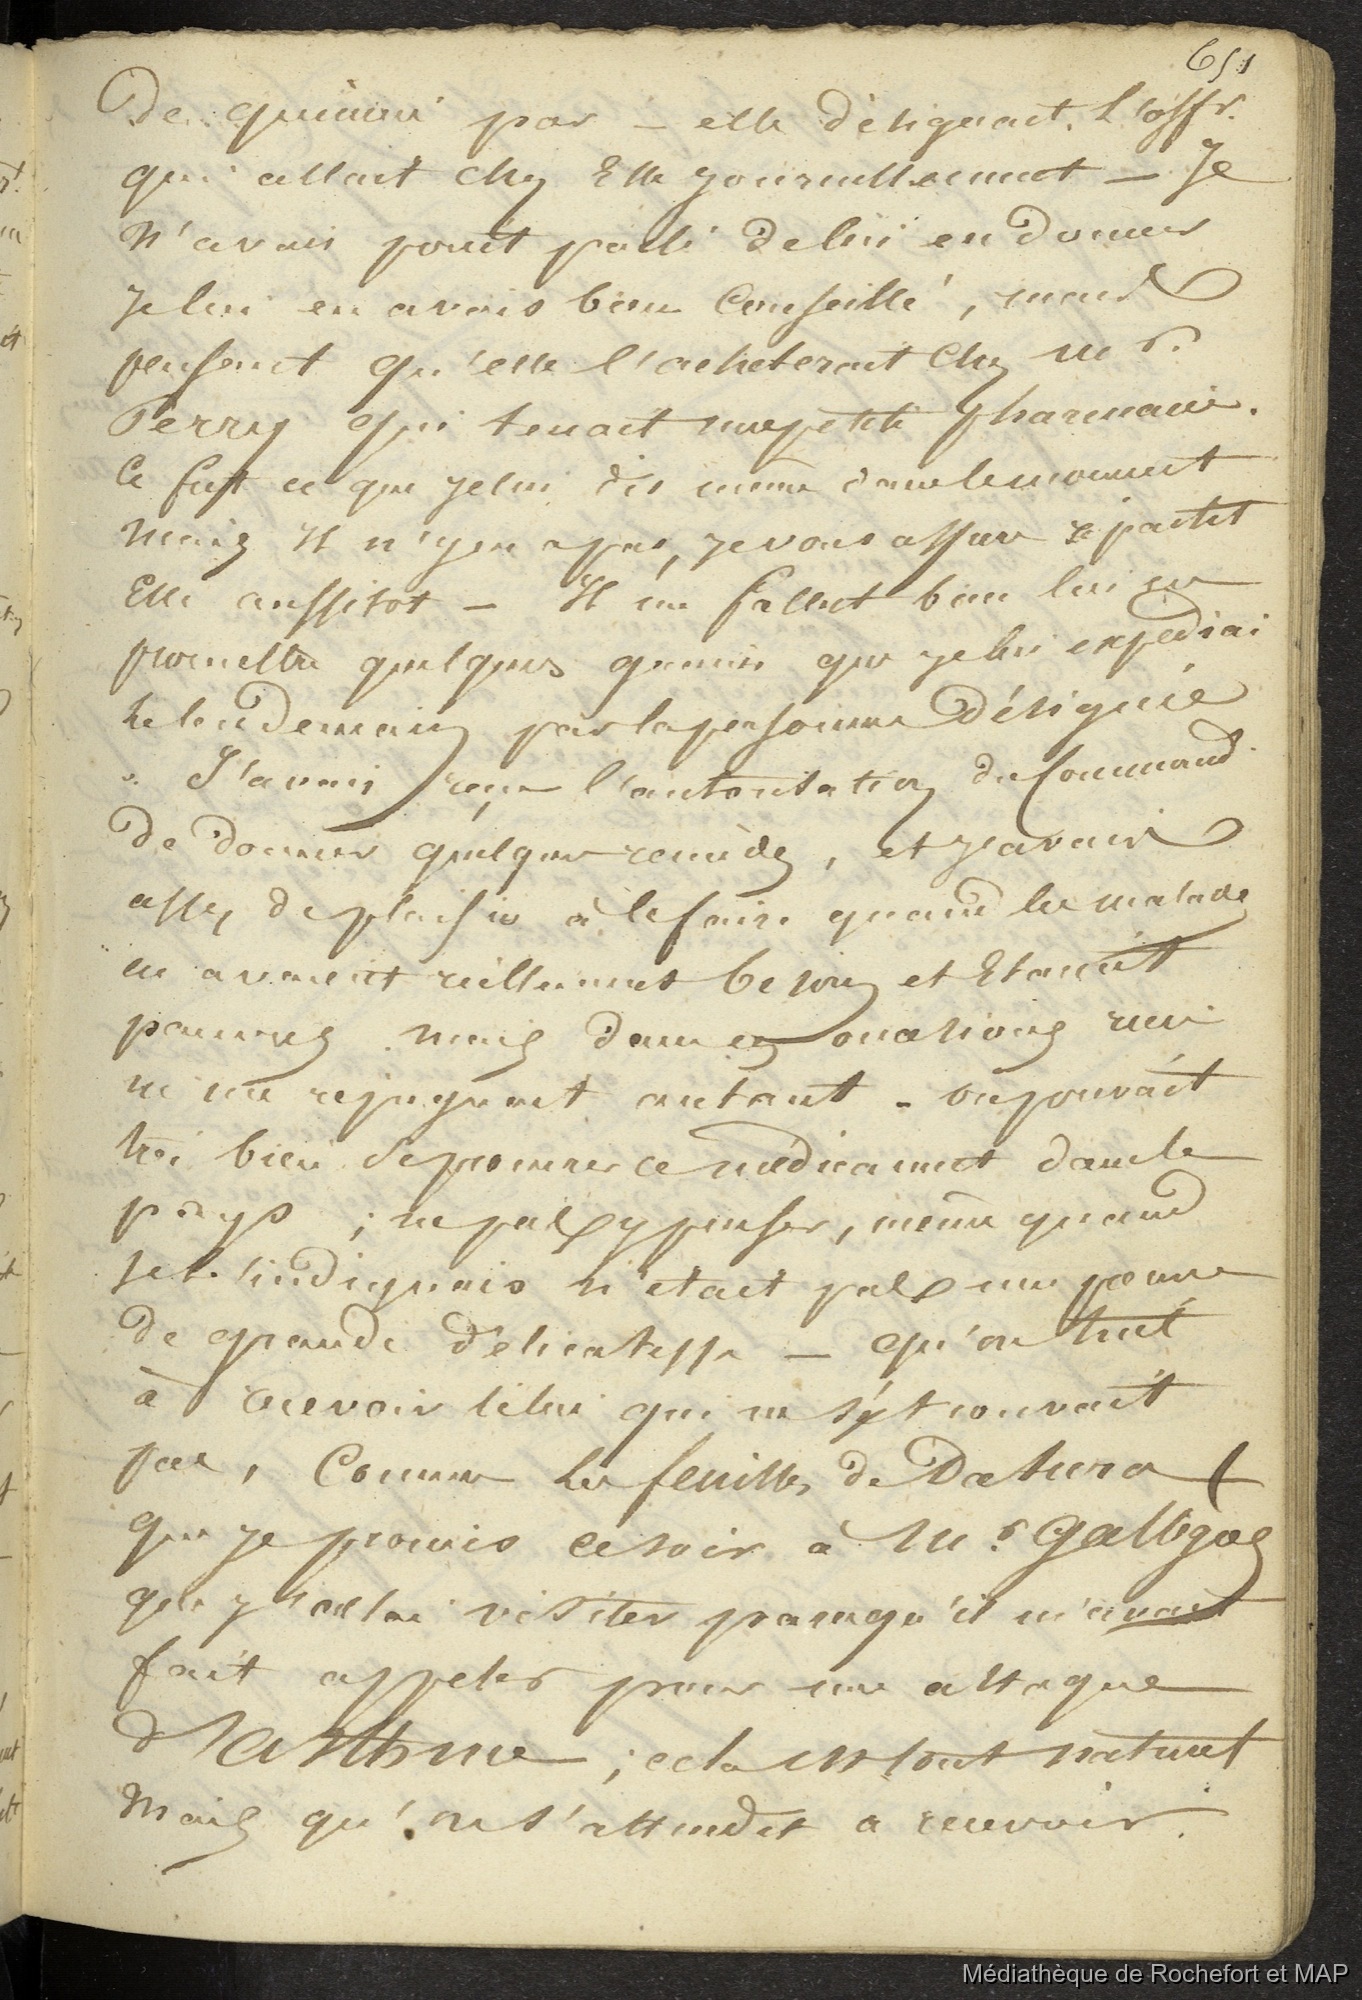 651
De quinine par — elle désignait l'offr.
qui allait chez Elle journellement — Je
N'avais point parlé de lui en donner
Je lui en avais bien Conseillé, mais
pensant qu'elle l'acheterait Chez mr.
Perry qui tenait une petite pharmacie.
Ce fut ce que je lui dis même dans le moment
Mais Il n'y en a pas, je vous assure repartit
Elle aussitot — Il me fallut bien lui en
promettre quelques grains que je lui expediai
Le lendemain par la personne Désignée
J'avais reçu l'autorisation du Command.
De donner quelques remèdes, et j'avais
assez de plaisir à le faire quand les malades
en avaient réellement besoin et Etaient
pauvres mais dans ces occasions rien
ne me repugnait autant - on pouvait
très bien se procurer ce médicament dans le
pays ; ne pas y penser, même quand
je l'indiquais n'était pas une preuve
De grande délicatesse — qu'on tint
à recevoir celui qui ne s'y trouvait
pas, Comme les feuilles de Datura
que je promis ce soir à Mr. Galbgas
que j'allai visiter parcequ'il m'avait
fait appeler pour une attaque
d'asthme ; cela est tout naturel
Mais qu'on s'attendit a recevoir.
Médiathèque de Rochefort et MAP